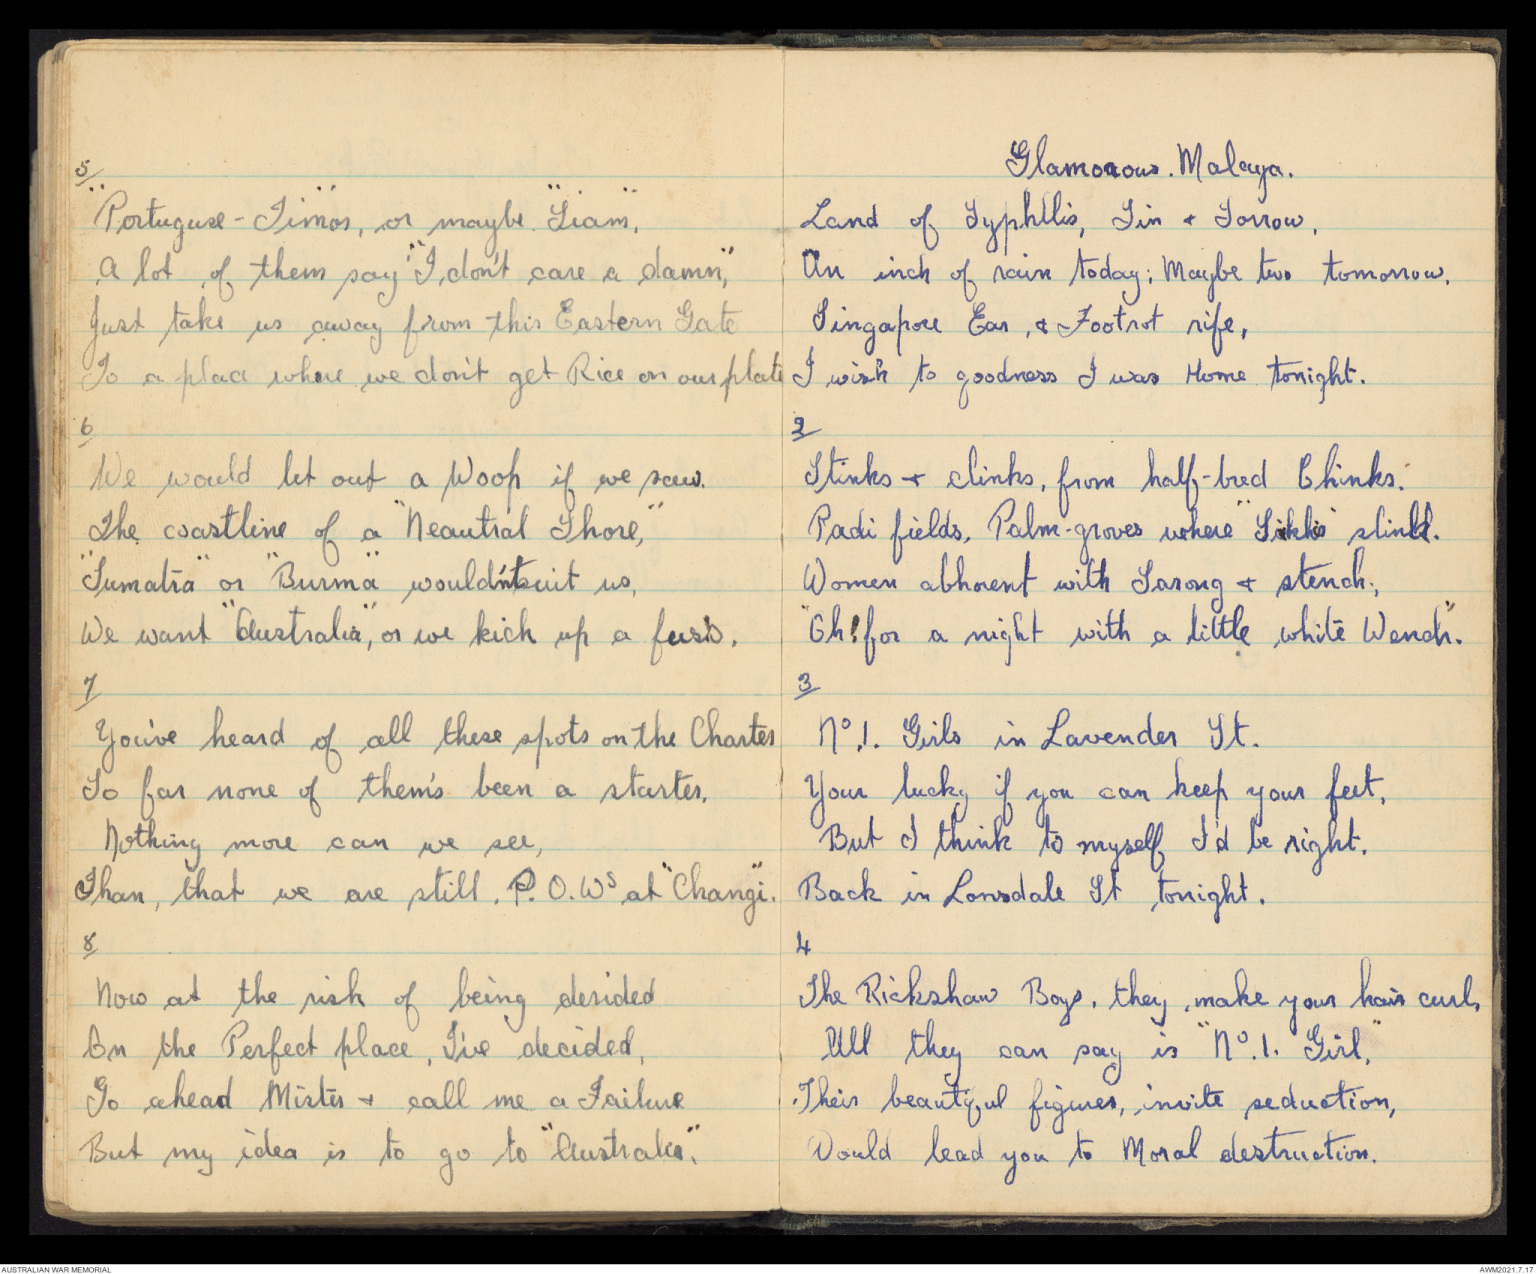 5/
"Portuguse-Timor", or maybe "Siam",
A lot of them say "I don't care a damn",
Just take us away from this Eastern Gate
To a place where we don't get Rice on our plate
6/
We would let out a Woop if we saw.
The coastline of a "Neautral Shore,"
"Sumatra" or "Burma" wouldn't suit us,
We want "Australia", or we kick up a fuss.
7/
You've heard of all these spots on the Charter
So far none of them's been a starter.
Nothing more can we see,
Than, that we are still. P.O.Ws at "Changi".
8/
Now at the risk of being derided
On the Perfect place, I've decided,
Go ahead Mister & call me a Failure
But my idea is to go to "Australia".
Glamorous. Malaya.
Land of Syphllis, Sin & Sorrow,
An inch of rain today; Maybe two tomorrow.
Singapore Ear, & Footrot rife,
I wish to goodness I was Home tonight.
2/
Stinks & clinks, from half-bred Chinks.
Padi fields, Palm-groves where "Sikhs" slink.
Women abhorent with Sarong & stench;
"Oh! for a night with a little white Wench".
3/
No.1. Girls in Lavender St.
Your lucky if you can keep your feet,
But I think to myself I'd be right.
Back in Lonsdale St tonight.
4
The Rickshaw Boys, they make your hair curl,
All they can say is "No.1. Girl,"
Their beautiful figures, invite seduction,
Would lead you to Moral destruction.
AUSTRALIAN WAR MEMORIAL
AWM2021.7.17